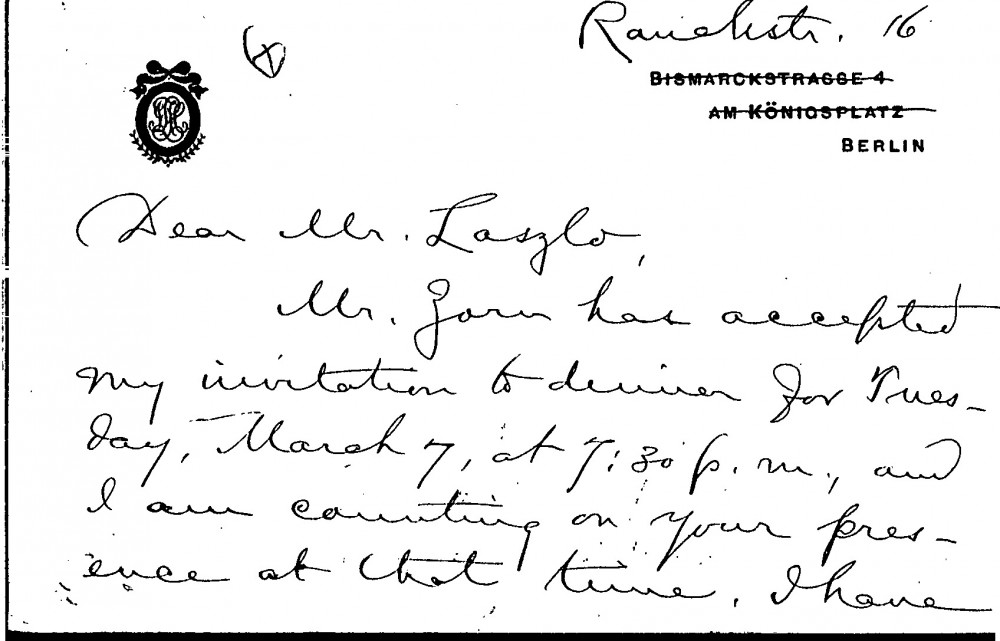 Rauchstr. 16
BISMARCKSTRASSE 4
AM KÖNIGSPLATZ
BERLIN
Dear Mr. Laszlo,
Mr. Zorn has accepted
my invitation to dinner for Tues-
day, March 7, at 7:30 p. m., and
I am counting on your pres-
ence at that time. I have